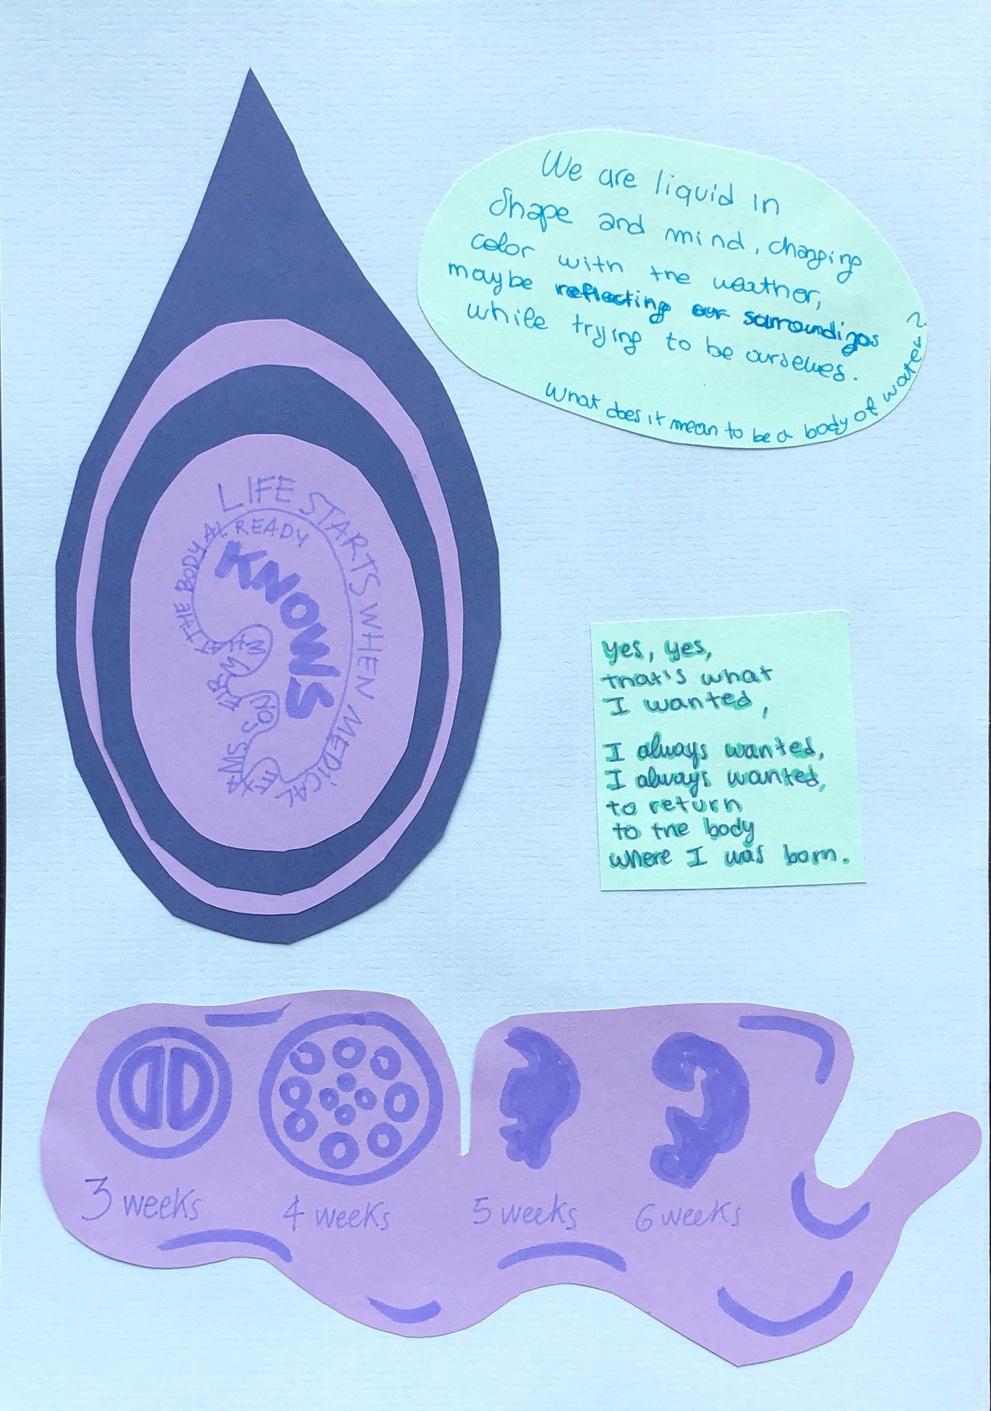 We are liquid in
shape and mind, changing
color with the weather,
maybe reflecting our surroundigs
while trying to be ourselves.
What does it mean to be a body of water?
LIFE STARTS WHEN MEDICAL
THE BODY ALREADY
KNOWS
yes, yes,
that's what
I wanted,
I always wanted,
I always wanted,
to return
to the body
where I was born.
3 weeks
4 weeks
5 weeks
6 weeks